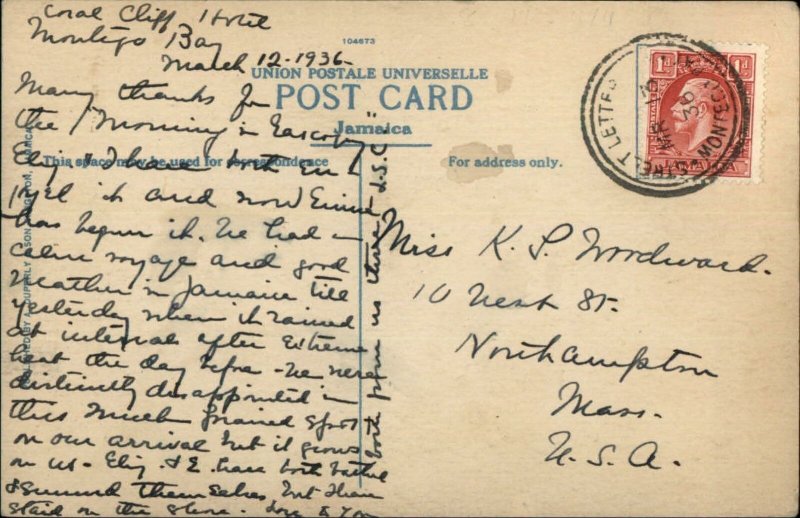 Coral Cliff Hotel
Montego Bay
March 12-1936-
104673
UNION POSTALE UNIVERSELLE
POST CARD
Jamaica
This space may be used for correspondence
For address only.
Many thanks for
the "Morning in
Eliz. & I have both en
it and now
has begun it. We had a
calm voyage and good
weather in Jamaica till
yesterday when it rained
at intervals after extreme
heat the day before - We were
distinctly disappointed in
this much praised spot
on our arrival but it grows
on us - Eliz. & E. have both bathed
& sunned themselves but I have
staid on the shore. Love to you
both from us three L.S.C.
Miss K. S. Woodward.
10 West St.
Northampton
Mass.
U.S.A.
1d
1d
JAMAICA